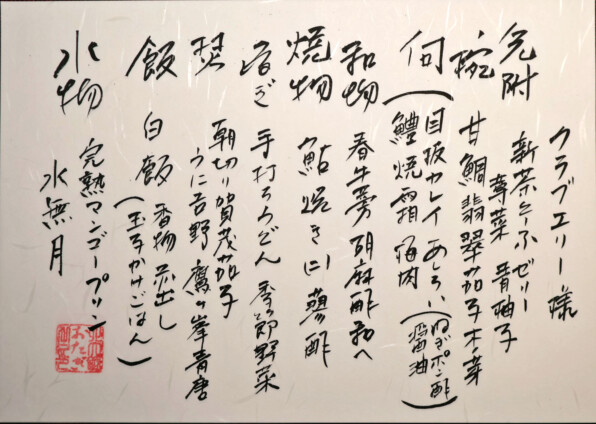 クラブエリー様
先附
新茶とうふゼリー
蓴菜 青柚子
椀
甘鯛翡翠茄子木の芽
向
目板カレイ あしらい(ねぎポン酢
鱧焼霜 梅肉 醤油)
和物
春牛蒡胡麻酢和へ
焼物
鮎焼き 蓼酢
手打うどん 季節野菜
焚
朝切り賀茂茄子
うに吉野 鷹ヶ峯青唐
飯
白飯 香物 赤出し
(玉子かけごはん)
水物
完熟マンゴープリン
水無月